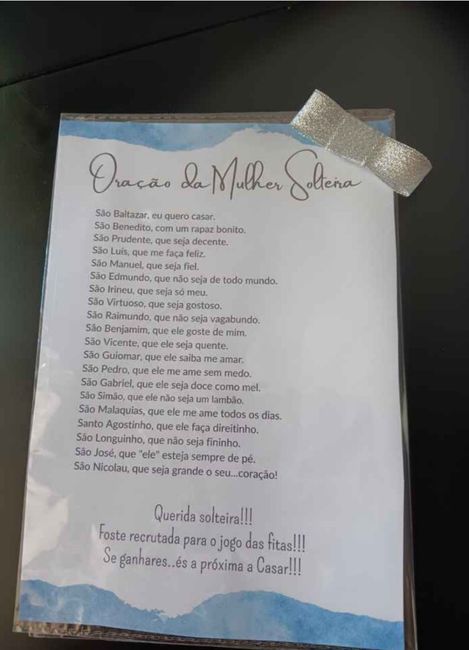 Oração da Mulher Solteira
São Baltazar, eu quero casar.
São Benedito, com um rapaz bonito.
São Prudente, que seja decente.
São Luís, que me faça feliz.
São Manuel, que seja fiel.
São Edmundo, que não seja de todo mundo.
São Irineu, que seja só meu.
São Virtuoso, que seja gostoso.
São Raimundo, que não seja vagabundo.
São Benjamim, que ele goste de mim.
São Vicente, que ele seja quente.
São Guiomar, que ele saiba me amar.
São Pedro, que ele me ame sem medo.
São Gabriel, que ele seja doce como mel.
São Simão, que ele não seja um lambão.
São Malaquias, que ele me ame todos os dias.
Santo Agostinho, que ele faça direitinho.
São Longuinho, que não seja fininho.
São José, que "ele" esteja sempre de pé.
São Nicolau, que seja grande o seu...coração!
Querida solteira!!!
Foste recrutada para o jogo das fitas!!!
Se ganhares..és a próxima a Casar!!!